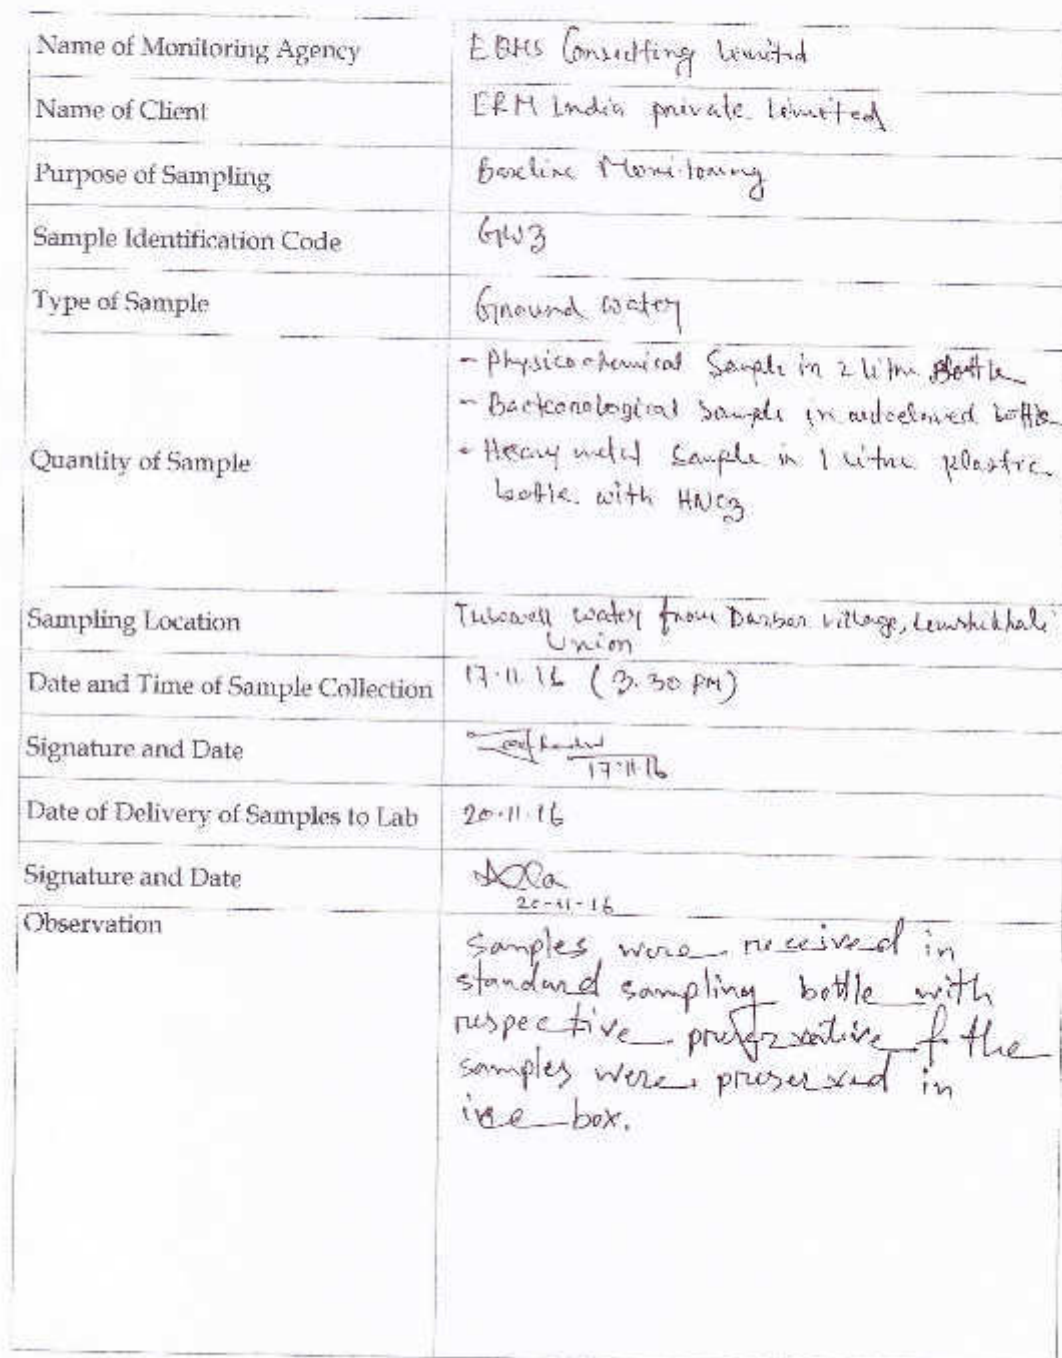 Name of Monitoring Agency EQMS Consulting Limited
Name of Client ERM India private Limited
Purpose of Sampling Baseline Monitoring
Sample Identification Code GW3
Type of Sample Ground water
Quantity of Sample
- Physicochemical Sample in 2 litre Bottle
- Bacteriological Sample in autoclaved bottle
- Heavy metal Sample in 1 litre plastic
bottle with HNO3
Sampling Location Tubewell water from Village,
Union
Date and Time of Sample Collection 17.11.16 (3.30 PM)
Signature and Date
17.11.16
Date of Delivery of Samples to Lab 20.11.16
Signature and Date
20-11-16
Observation
Samples were received in
standard sampling bottle with
respective preservative & the
samples were preserved in
ice box.